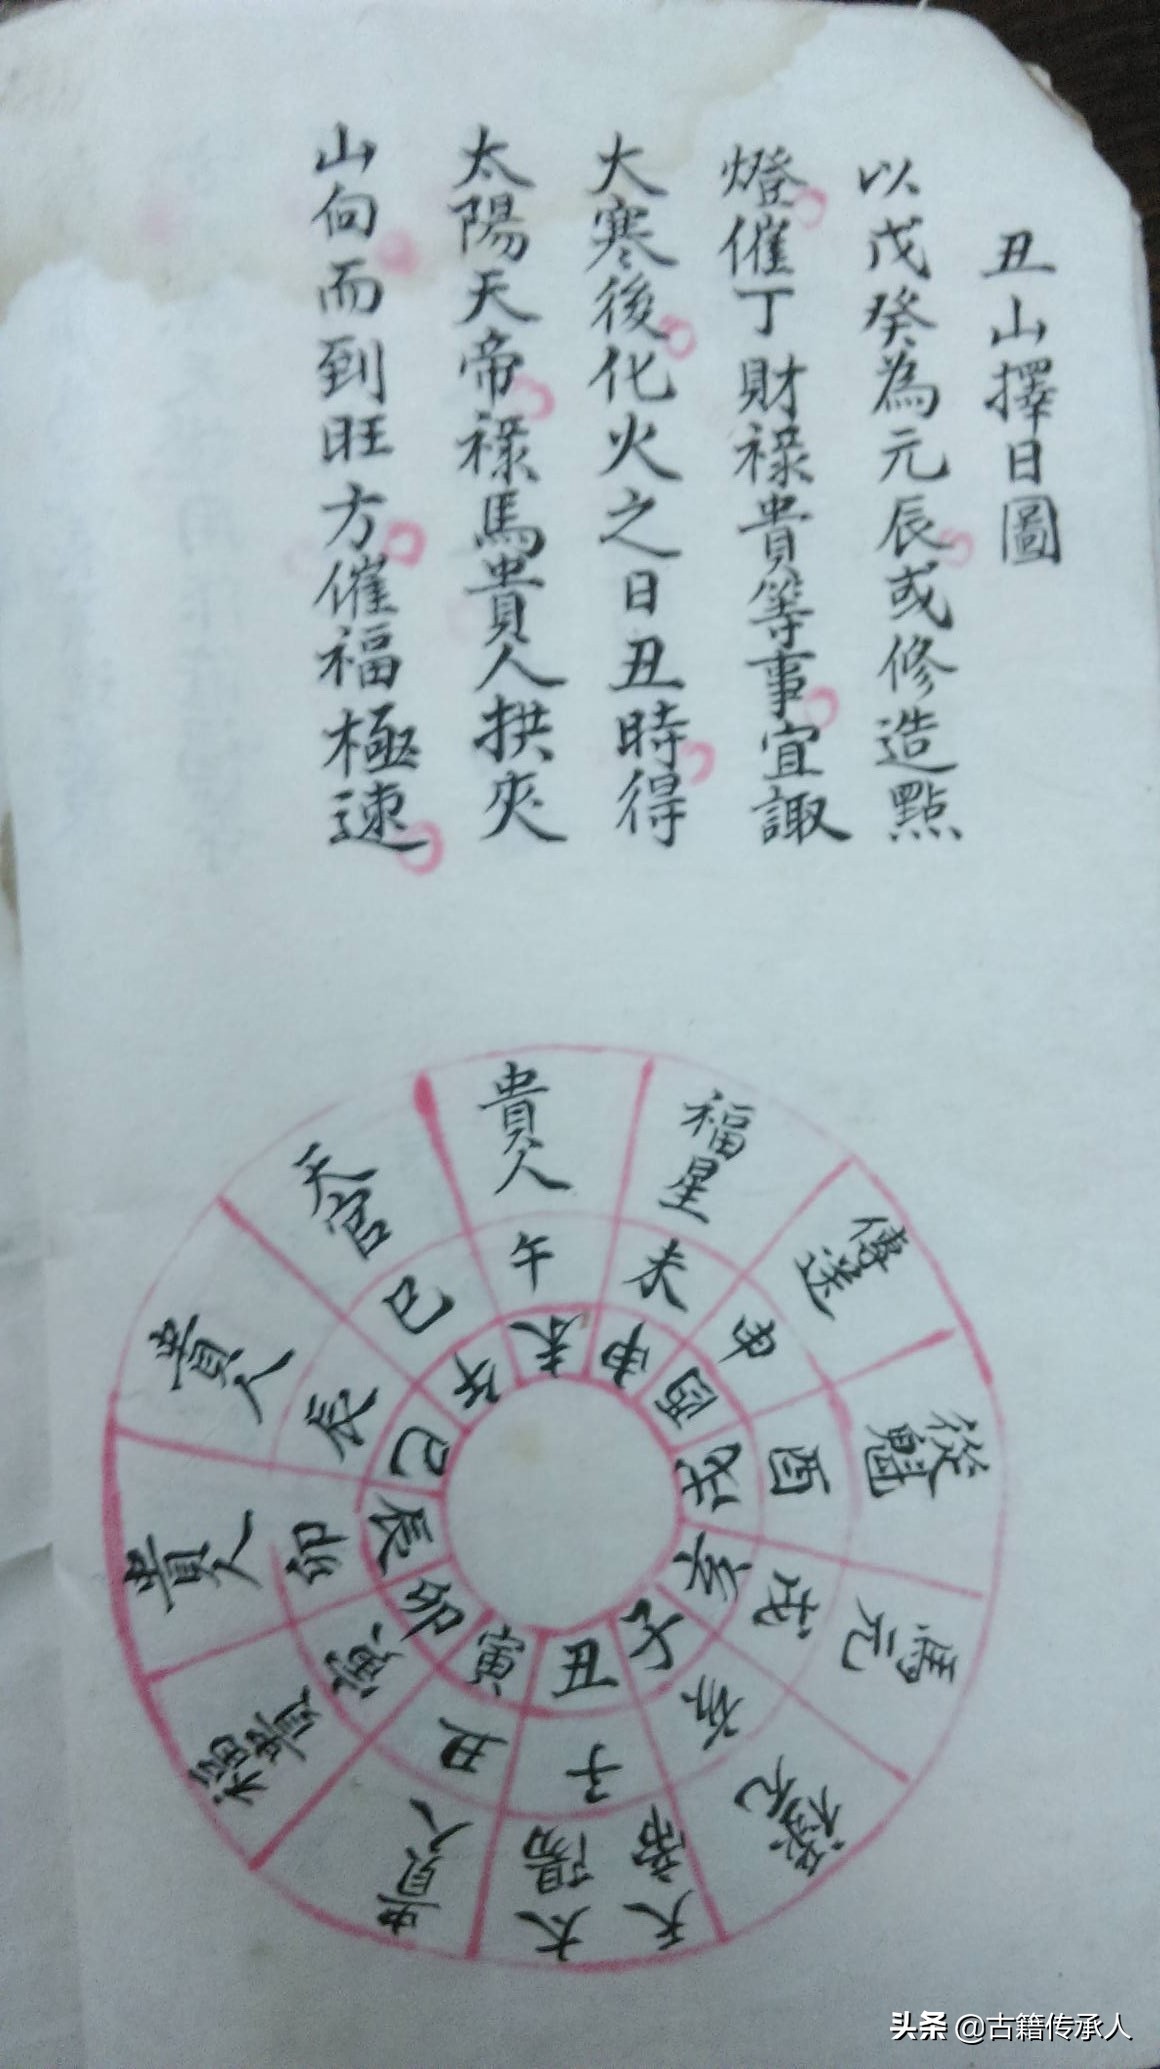 丑山擇日圖
以戊癸為元辰或修造點
燈催丁財祿貴等事宜諏
大寒後化火之日丑時得
太陽天帝祿馬貴人拱夾
山向而到旺方催福極速
貴人
福星
傳送
從魁
馬元
祿元
天帝
太陽
貴人
福貴
貴人
貴人
天官
午
未
申
酉
戌
亥
子
丑
寅
卯
辰
巳
未
申
酉
戌
亥
子
丑
寅
卯
辰
巳
午
头条 @古籍传承人